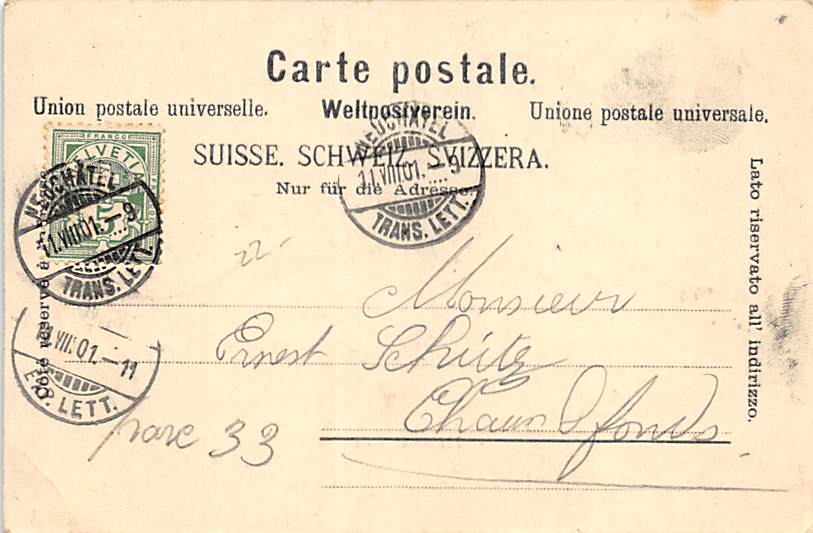 Carte postale.
Union postale universelle. Weltpostverein. Unione postale universale.
SUISSE. SCHWEIZ. SVIZZERA.
Nur für die Adresse.
Lato riservato all' indirizzo.
Côté réservé à
FRANCO
HELVETIA
5
NEUCHÂTEL
11.VIII.01.–9
TRANS. LETT.
NEUCHÂTEL
11.VIII.01.–9
TRANS. LETT.
VIII.01.–11
EXP. LETT.
Monsieur
Ernest Schütz
Chaux d fonds.
parc 33